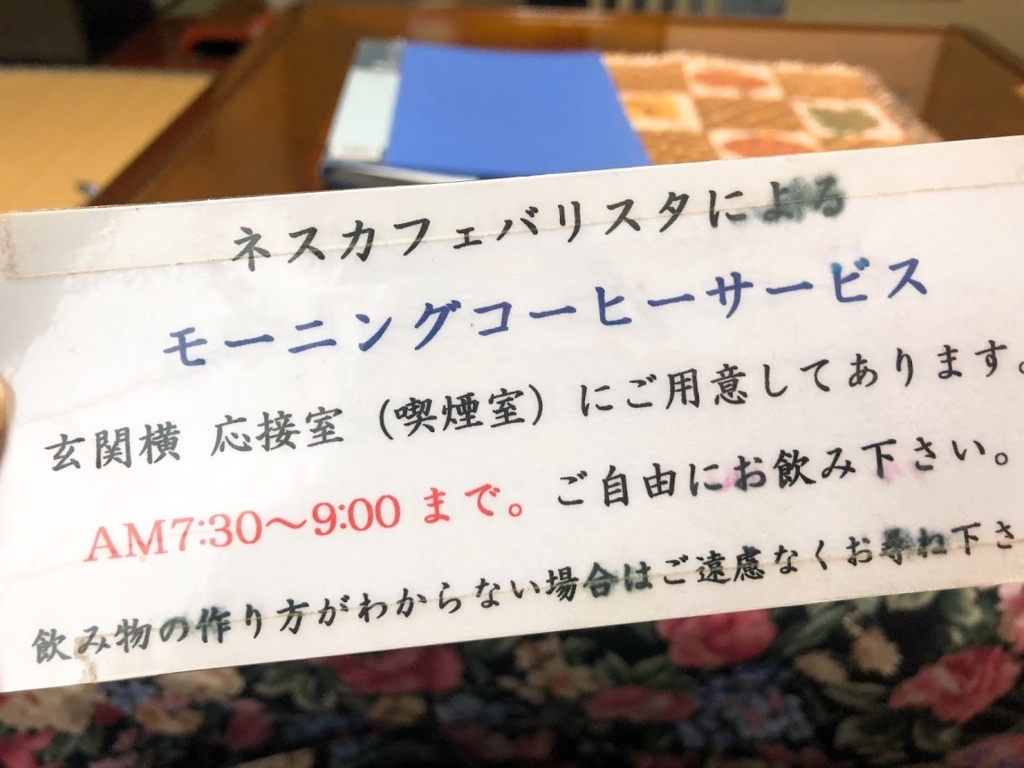 ネスカフェバリスタによる
モーニングコーヒーサービス
玄関横 応接室（喫煙室）にご用意してあります。
AM7:30～9:00 まで。ご自由にお飲み下さい。
飲み物の作り方がわからない場合はご遠慮なくお尋ね下さ